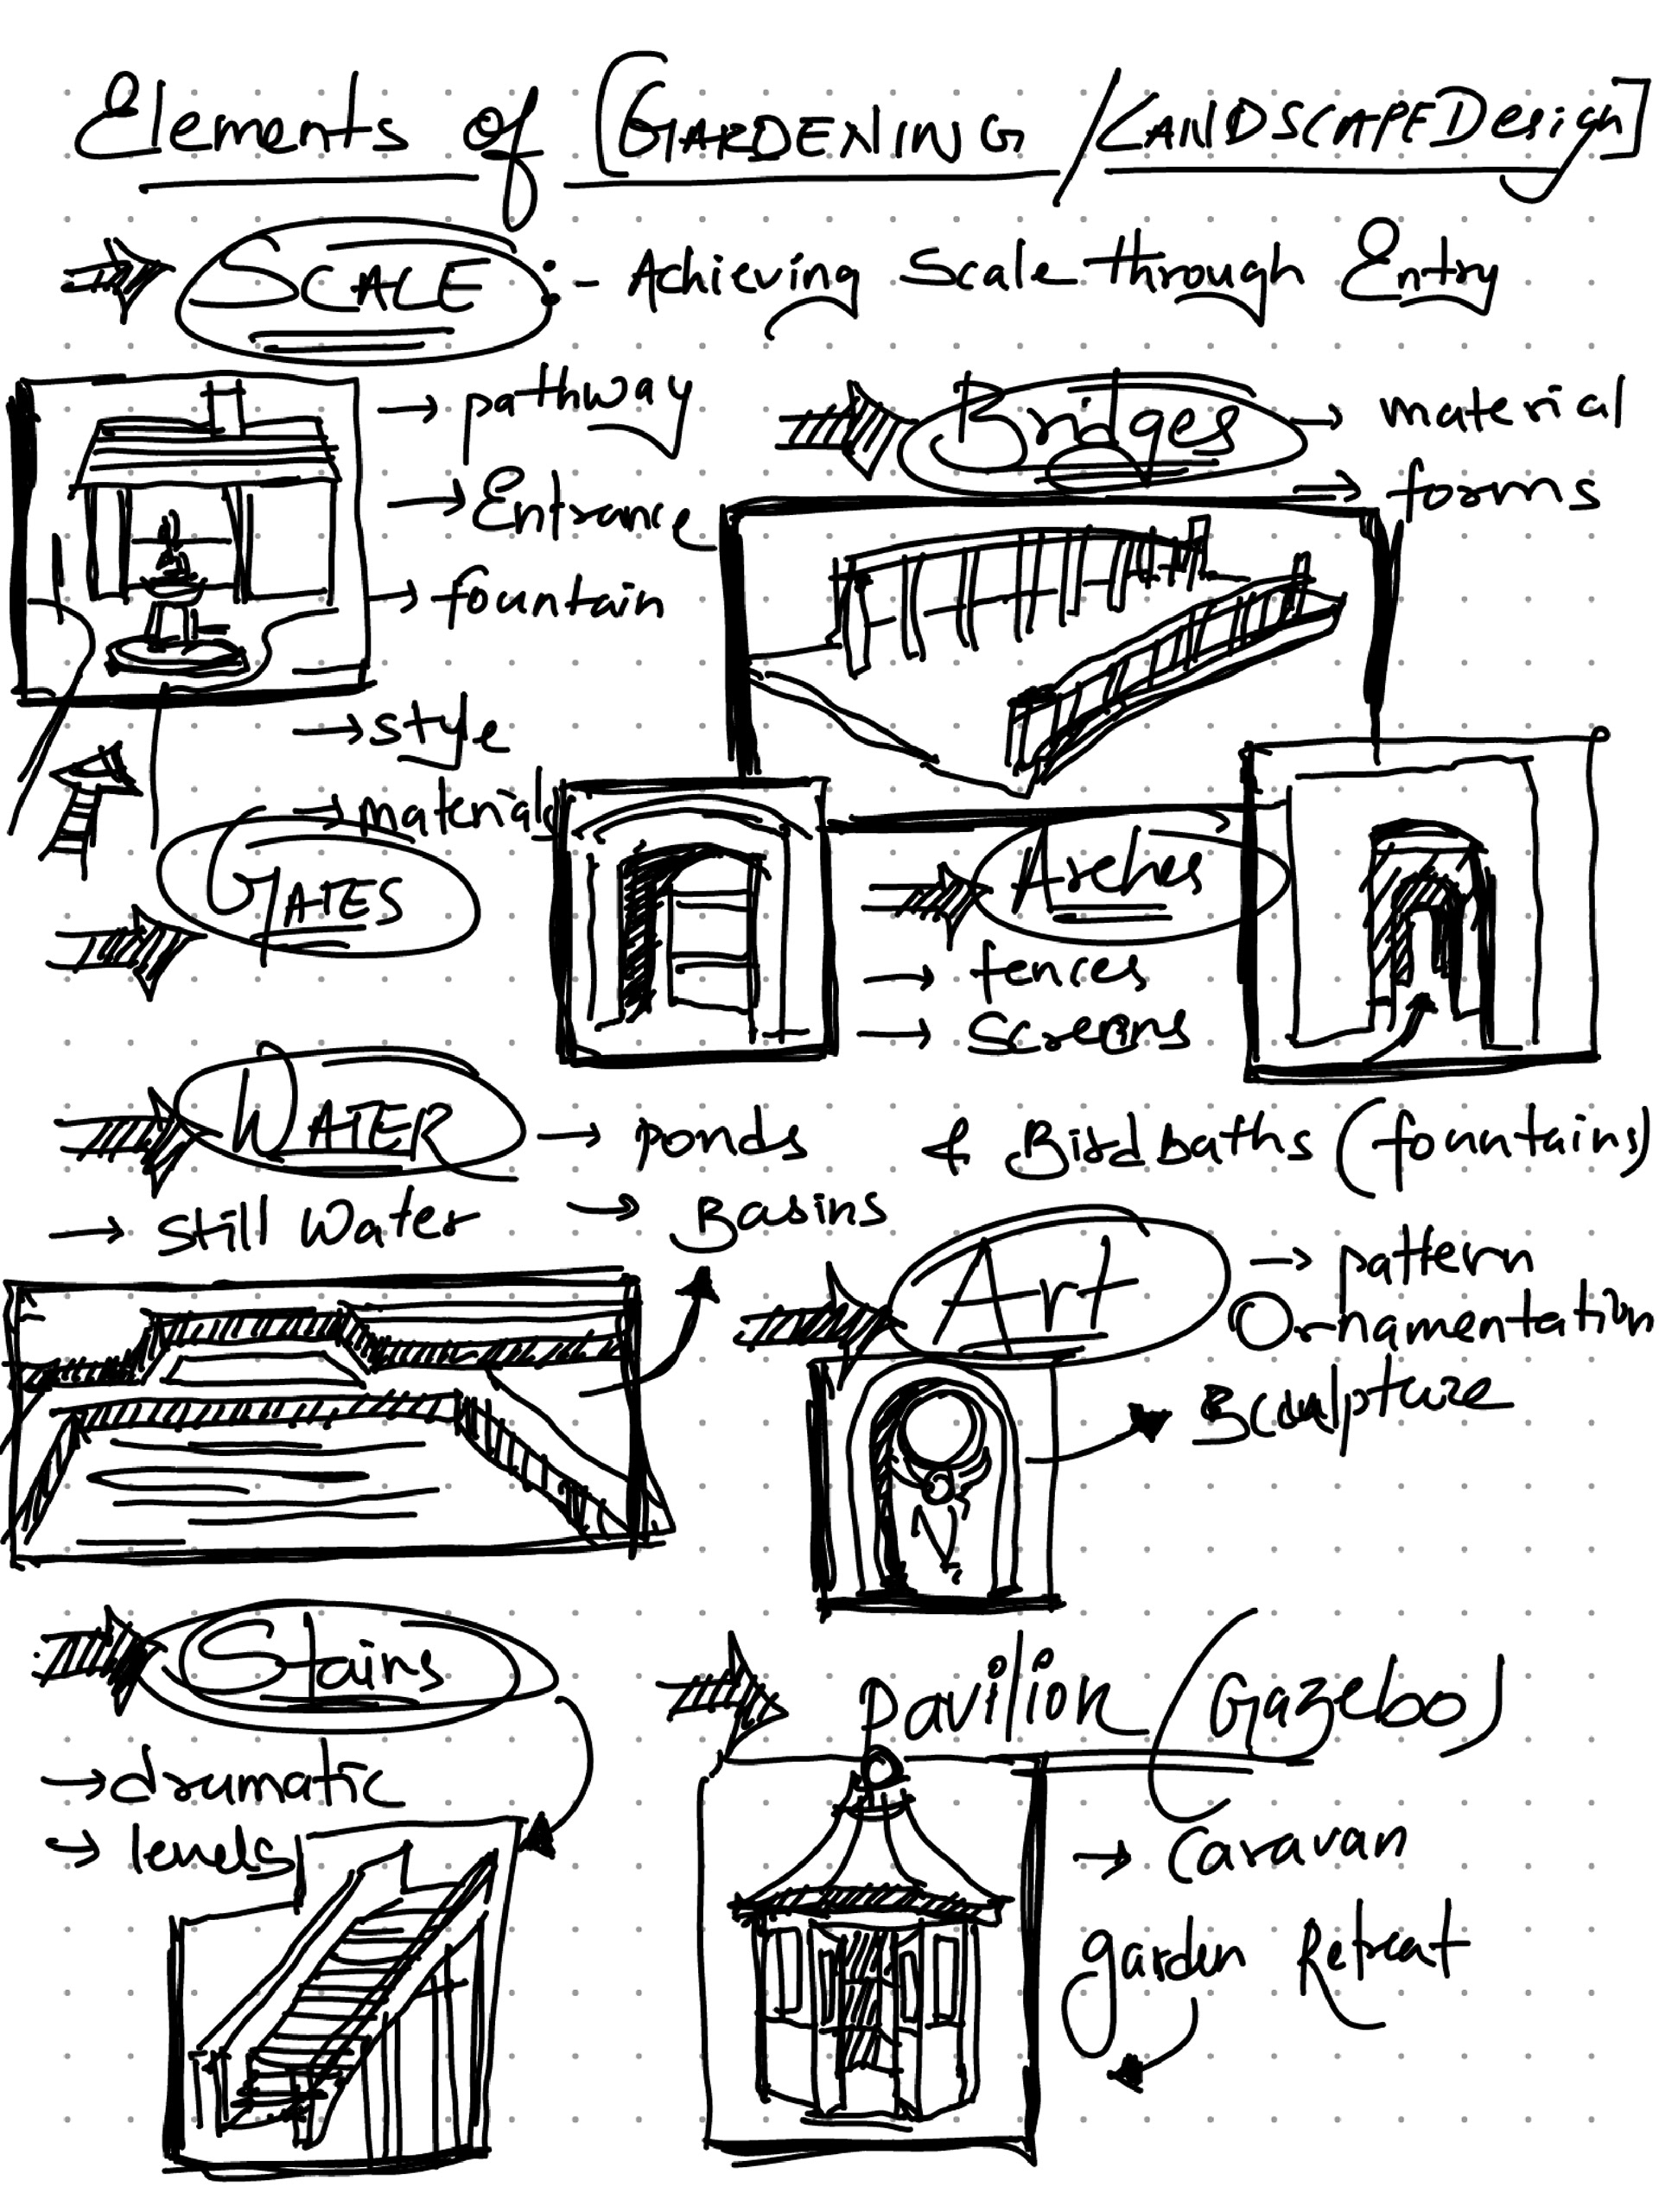 Elements of [GARDENING / LANDSCAPE Design]
SCALE :- Achieving Scale through Entry
→ pathway
→ Entrance
→ fountain
→ style
→ materials
Bridges → material
→ forms
GATES
Arches
→ fences
→ Screens
WATER → ponds & Birdbaths (fountains)
→ Still Water → Basins
Art → pattern
Ornamentation
Sculpture
Stairs
→ dramatic
→ levels
Pavilion (Gazebo)
→ Caravan
garden Retreat